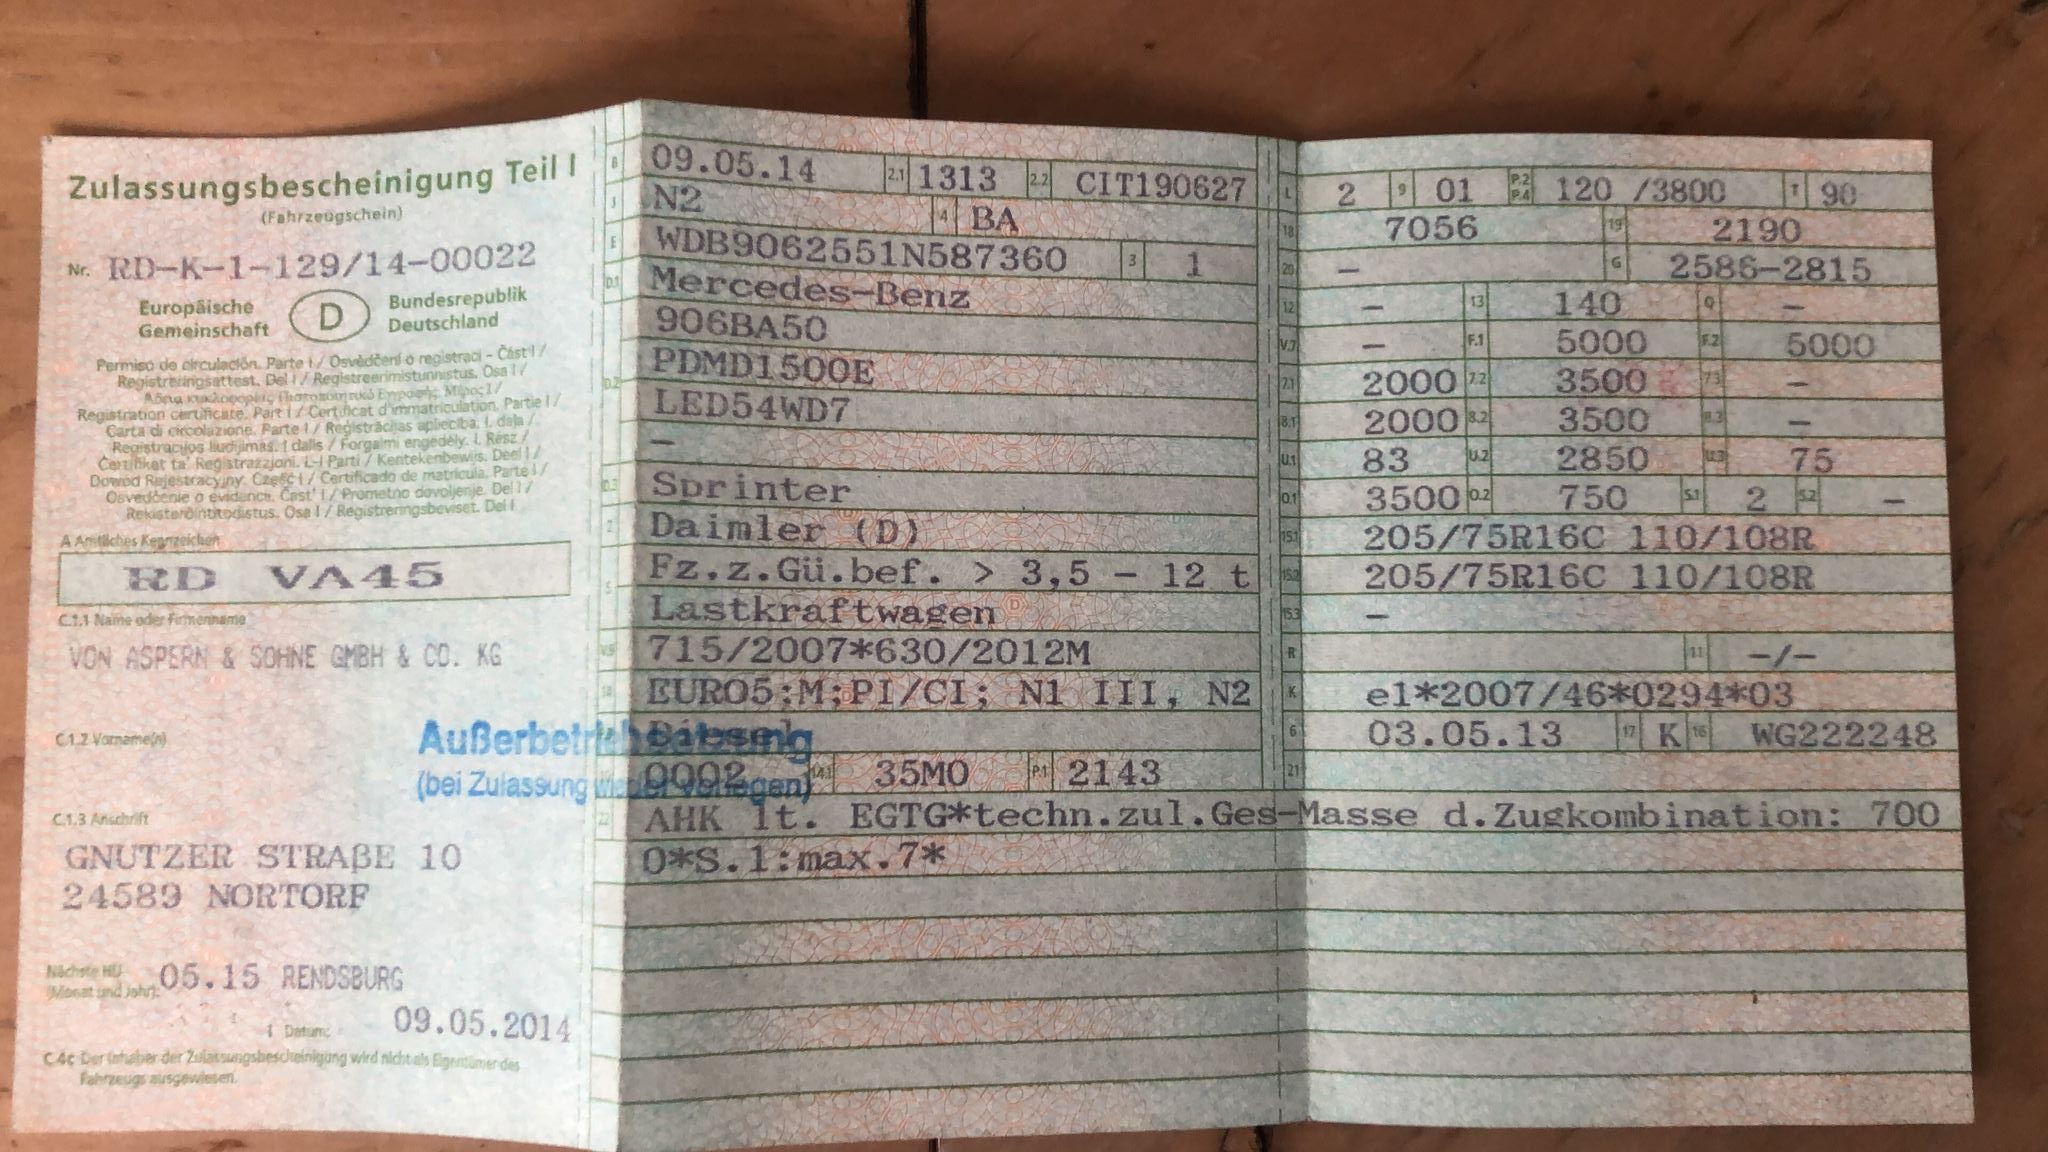 Zulassungsbescheinigung Teil I
(Fahrzeugschein)
Nr. RD-K-1-129/14-00022
Europäische Gemeinschaft
D
Bundesrepublik Deutschland
Permiso de circulación. Parte I / Osvědčení o registraci - Část I /
Registreringsattest. Del I / Registreerimistunnistus. Osa I /
Registration certificate. Part I / Certificat d'immatriculation. Partie I /
Carta di circolazione. Parte I / Reģistrācijas apliecība. I. daļa /
Registracijos liudijimas. I dalis / Forgalmi engedély. I. Rész /
Ċertifikat ta' Reġistrazzjoni. L-I Parti / Kentekenbewijs. Deel I /
Dowód Rejestracyjny. Część I / Certificado de matrícula. Parte I /
Osvedčenie o evidencii. Časť I / Prometno dovoljenje. Del I /
Rekisteröintitodistus. Osa I / Registreringsbeviset. Del I
A Amtliches Kennzeichen
RD VA45
C.1.1 Name oder Firmenname
VON ASPERN & SOHNE GMBH & CO. KG
C.1.2 Vorname(n)
Außerbetriebsetzung
(bei Zulassung wieder vorlegen)
C.1.3 Anschrift
GNUTZER STRAßE 10
24589 NORTORF
Nächste HU
(Monat und Jahr): 05.15 RENDSBURG
I Datum: 09.05.2014
C.4c Der Inhaber der Zulassungsbescheinigung wird nicht als Eigentümer des
Fahrzeugs ausgewiesen.
B 09.05.14 2.1 1313 2.2 CIT190627
J N2 4 BA
E WDB9062551N587360 3 1
D.1 Mercedes-Benz
906BA50
D.2 PDMD1500E
LED54WD7
–
D.3 Sprinter
2 Daimler (D)
5 Fz.z.Gü.bef. > 3,5 - 12 t
Lastkraftwagen
V.9 715/2007*630/2012M
14 EURO5;M;PI/CI; N1 III, N2
Diesel
0002 14.1 35M0 P.1 2143
22 AHK lt. EGTG*techn.zul.Ges-Masse d.Zugkombination: 700
0*S.1:max.7*
L 2 9 01 P.2 P.4 120 /3800 T 90
18 7056 19 2190
20 – G 2586-2815
12 – 13 140 Q –
V.7 – F.1 5000 F.2 5000
7.1 2000 7.2 3500 7.3 –
8.1 2000 8.2 3500 8.3 –
U.1 83 U.2 2850 U.3 75
O.1 3500 O.2 750 S.1 2 S.2 –
15.1 205/75R16C 110/108R
15.2 205/75R16C 110/108R
15.3 –
R 11 –/–
K e1*2007/46*0294*03
6 03.05.13 17 K 16 WG222248
21